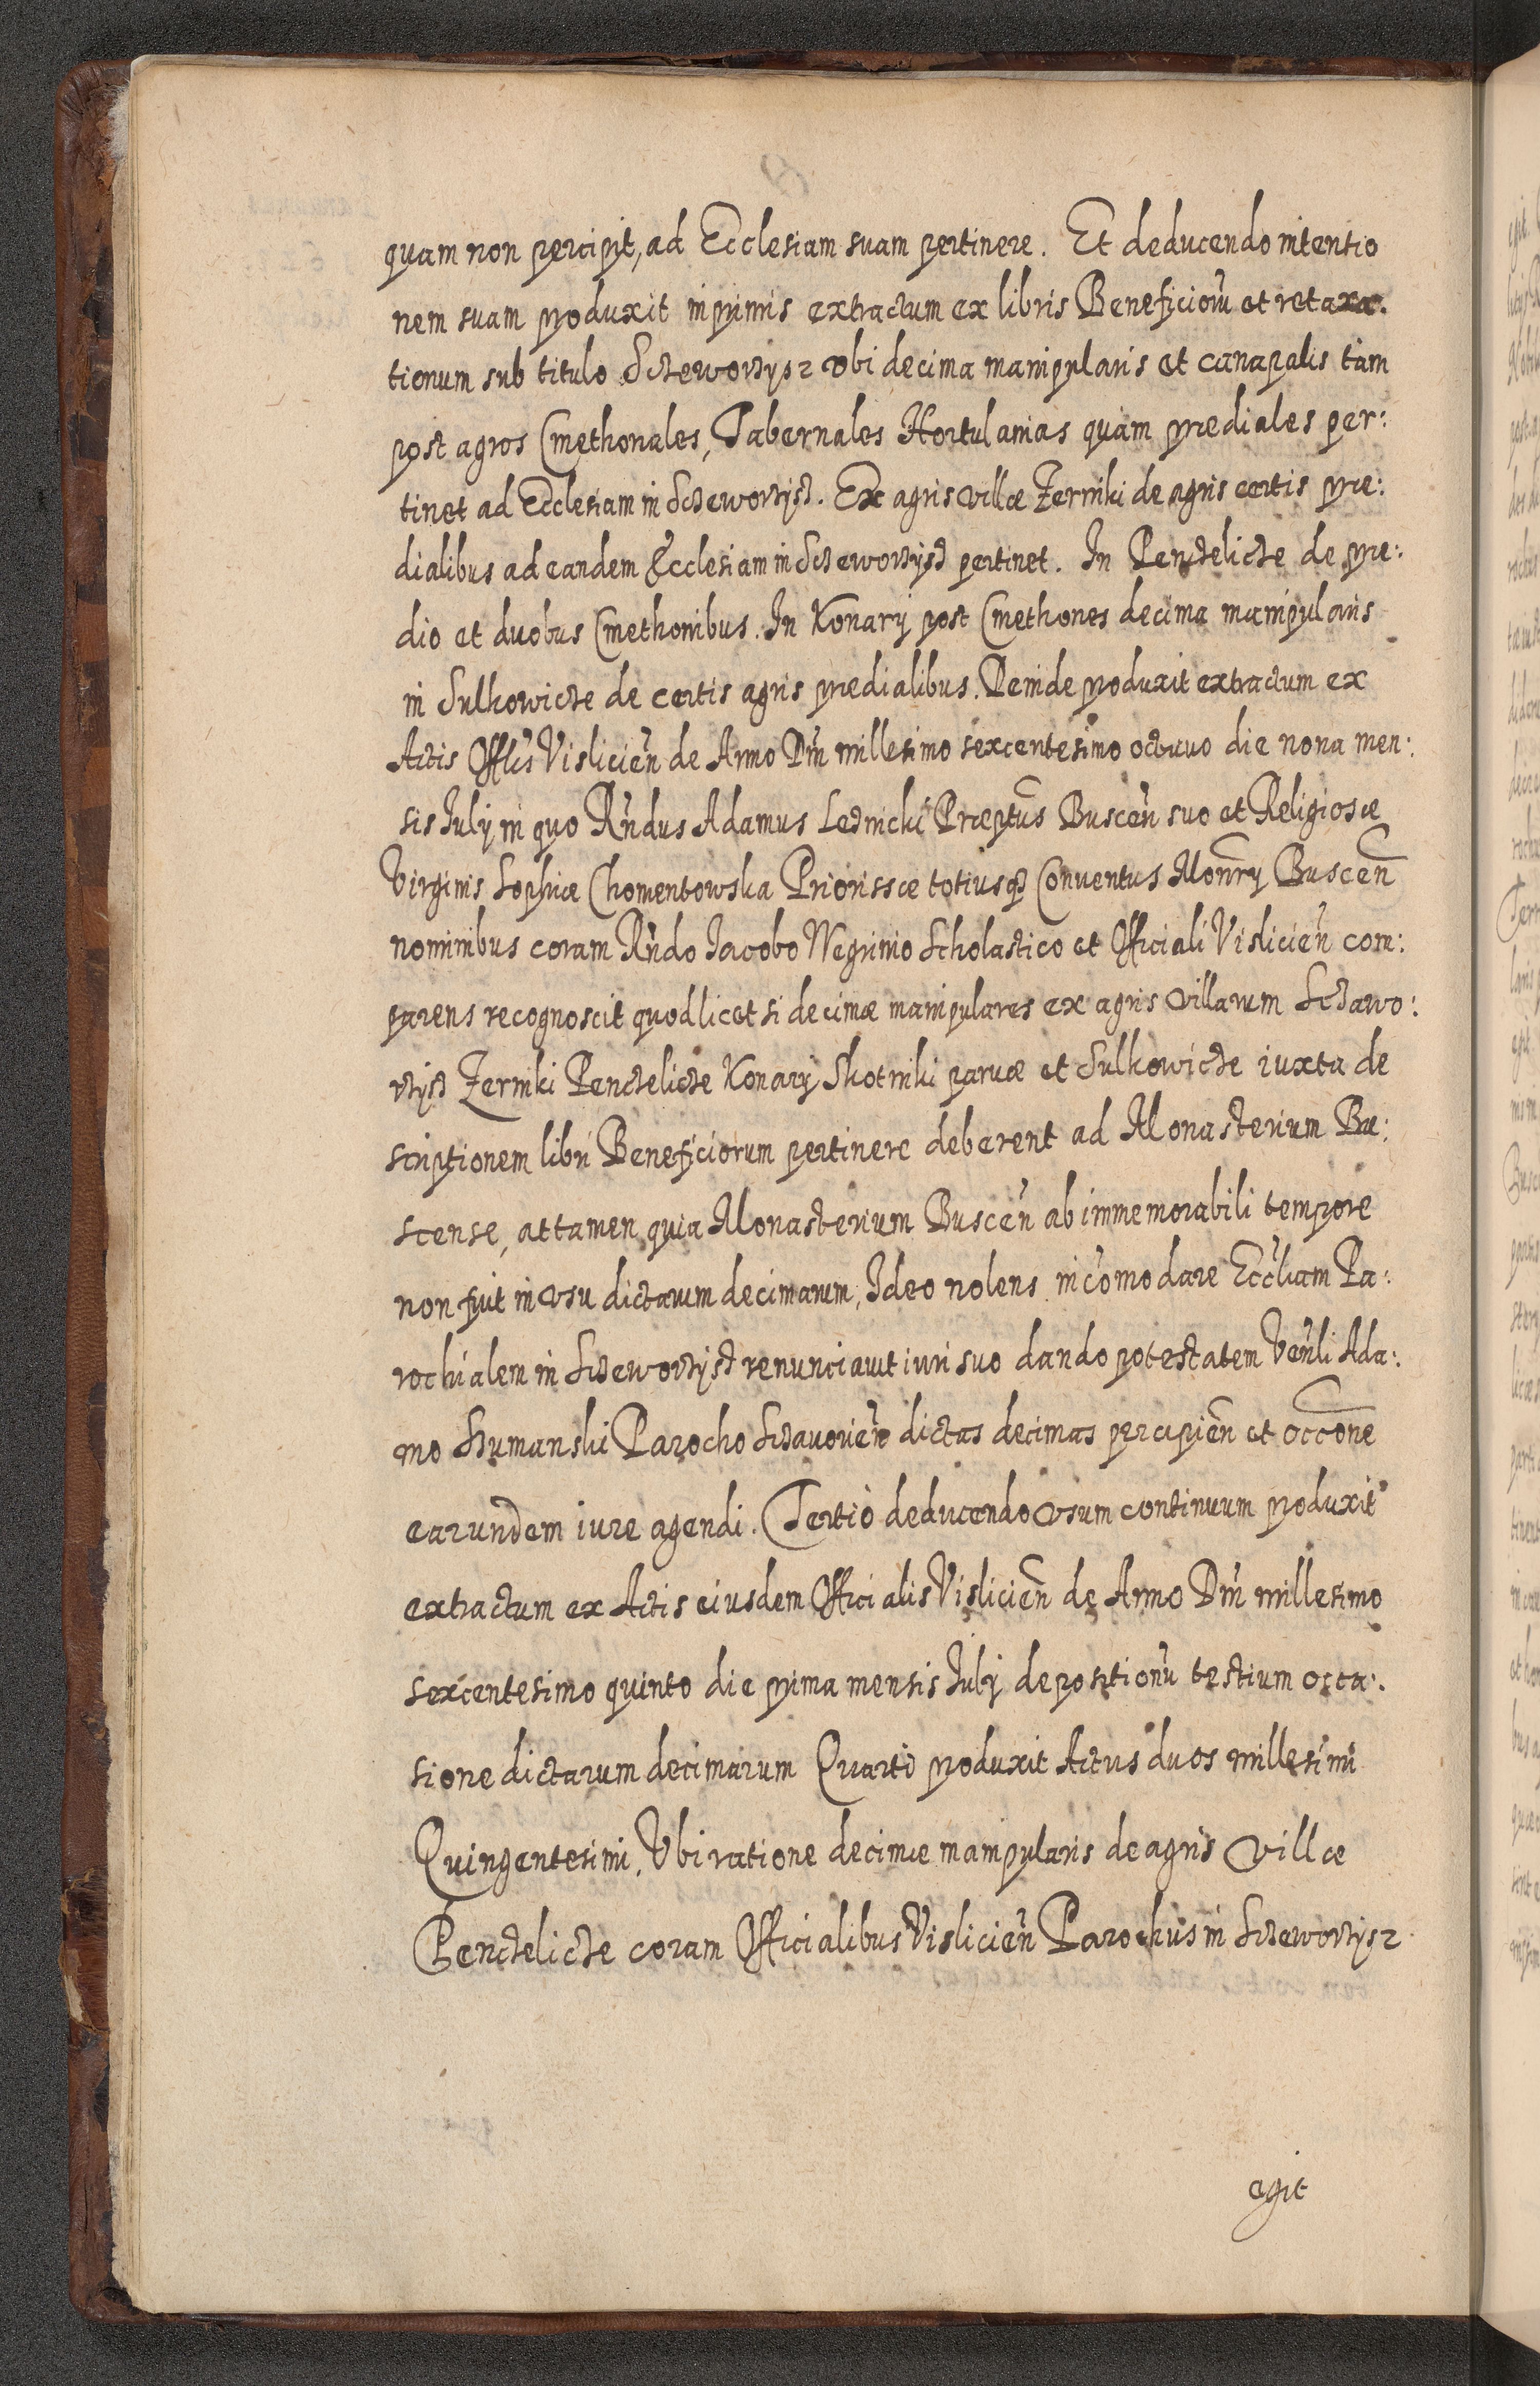 quam non percipit, ad Ecclesiam suam pertinere. Et deducendo intentio
nem suam produxit inprimis extractum ex libris Beneficiorũ et retaxa.
tionum sub titulo Sczeworzysz vbi decima manipularis et canapalis tàm
post agros Cmethonales, Tabernales Hortulanias quàm prediales per:
tinet ad Ecclesiam in Sczeworzysz. Ex agris villæ Zerniki de agris certis præ:
dialibus ad eandem Ecclesiam in Sczeworzysz pertinet. In Penczelicze de præ:
dio et duobus Cmethonibus. In Konary post Cmethones decima manipularis
in Sulkowicze de certis agris prædialibus. Deinde produxit extractum ex
Actis Offlis Vislicień de Anno Dni millesimo sexcentesimo octauo die nona men:
sis July in quo Rndus Adamus Leznicki Præptus Busceń suo et Religiosæ
Virginis Sophiæ Chomentowska Priorissæ totiusq3 Conuentus Monry Buscen
nominibus coram Rndo Iacobo Negrinio Scholastico et Officiali Vislicień com:
parens recognoscit quod licet si decimæ manipulares ex agris villarum Sczawo:
rzysz Zerniki Penczelicze Konary Skotniki paruæ et Sulkowicze iuxta de
scriptionem libri Beneficiorum pertinere deberent ad Monasterium Bu:
scense, attamen quia Monasterium Busceń ab immemorabili tempore
non fuit in vsu dictarum decimarum, Ideo nolens incomodare Eccliam Pa:
rochialem in Sczeworzysz renunciauit iuri suo dando potestatem Venli Ada:
mo Szumanski Parocho Sczauorień dictas decimas percipień et occone
earundem iure agendi. Tertiò deducendo vsum continuum produxit
extractum ex Actis eiusdem Officialis Vislicień de Anno Dni millesimo
sexcentesimo quinto die prima mensis July depositionũ testium occa:
sione dictarum decimarum Quartò produxit Actus duos millesimi
Quingentesimi, Vbi ratione decimæ manipularis de agris villæ
Penczelicze coram Officialibus Vislicień Parochus in Sczeworzysz
agit